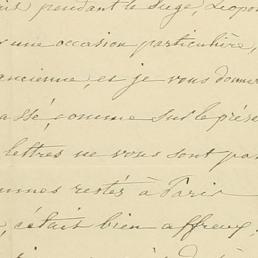 pendant le siège, Léopol
une occasion particulière,
ancienne, et je vous donner
assé, comme sur le prése
lettres ne vous sont par
ommes restés à Paris
c'était bien affreux